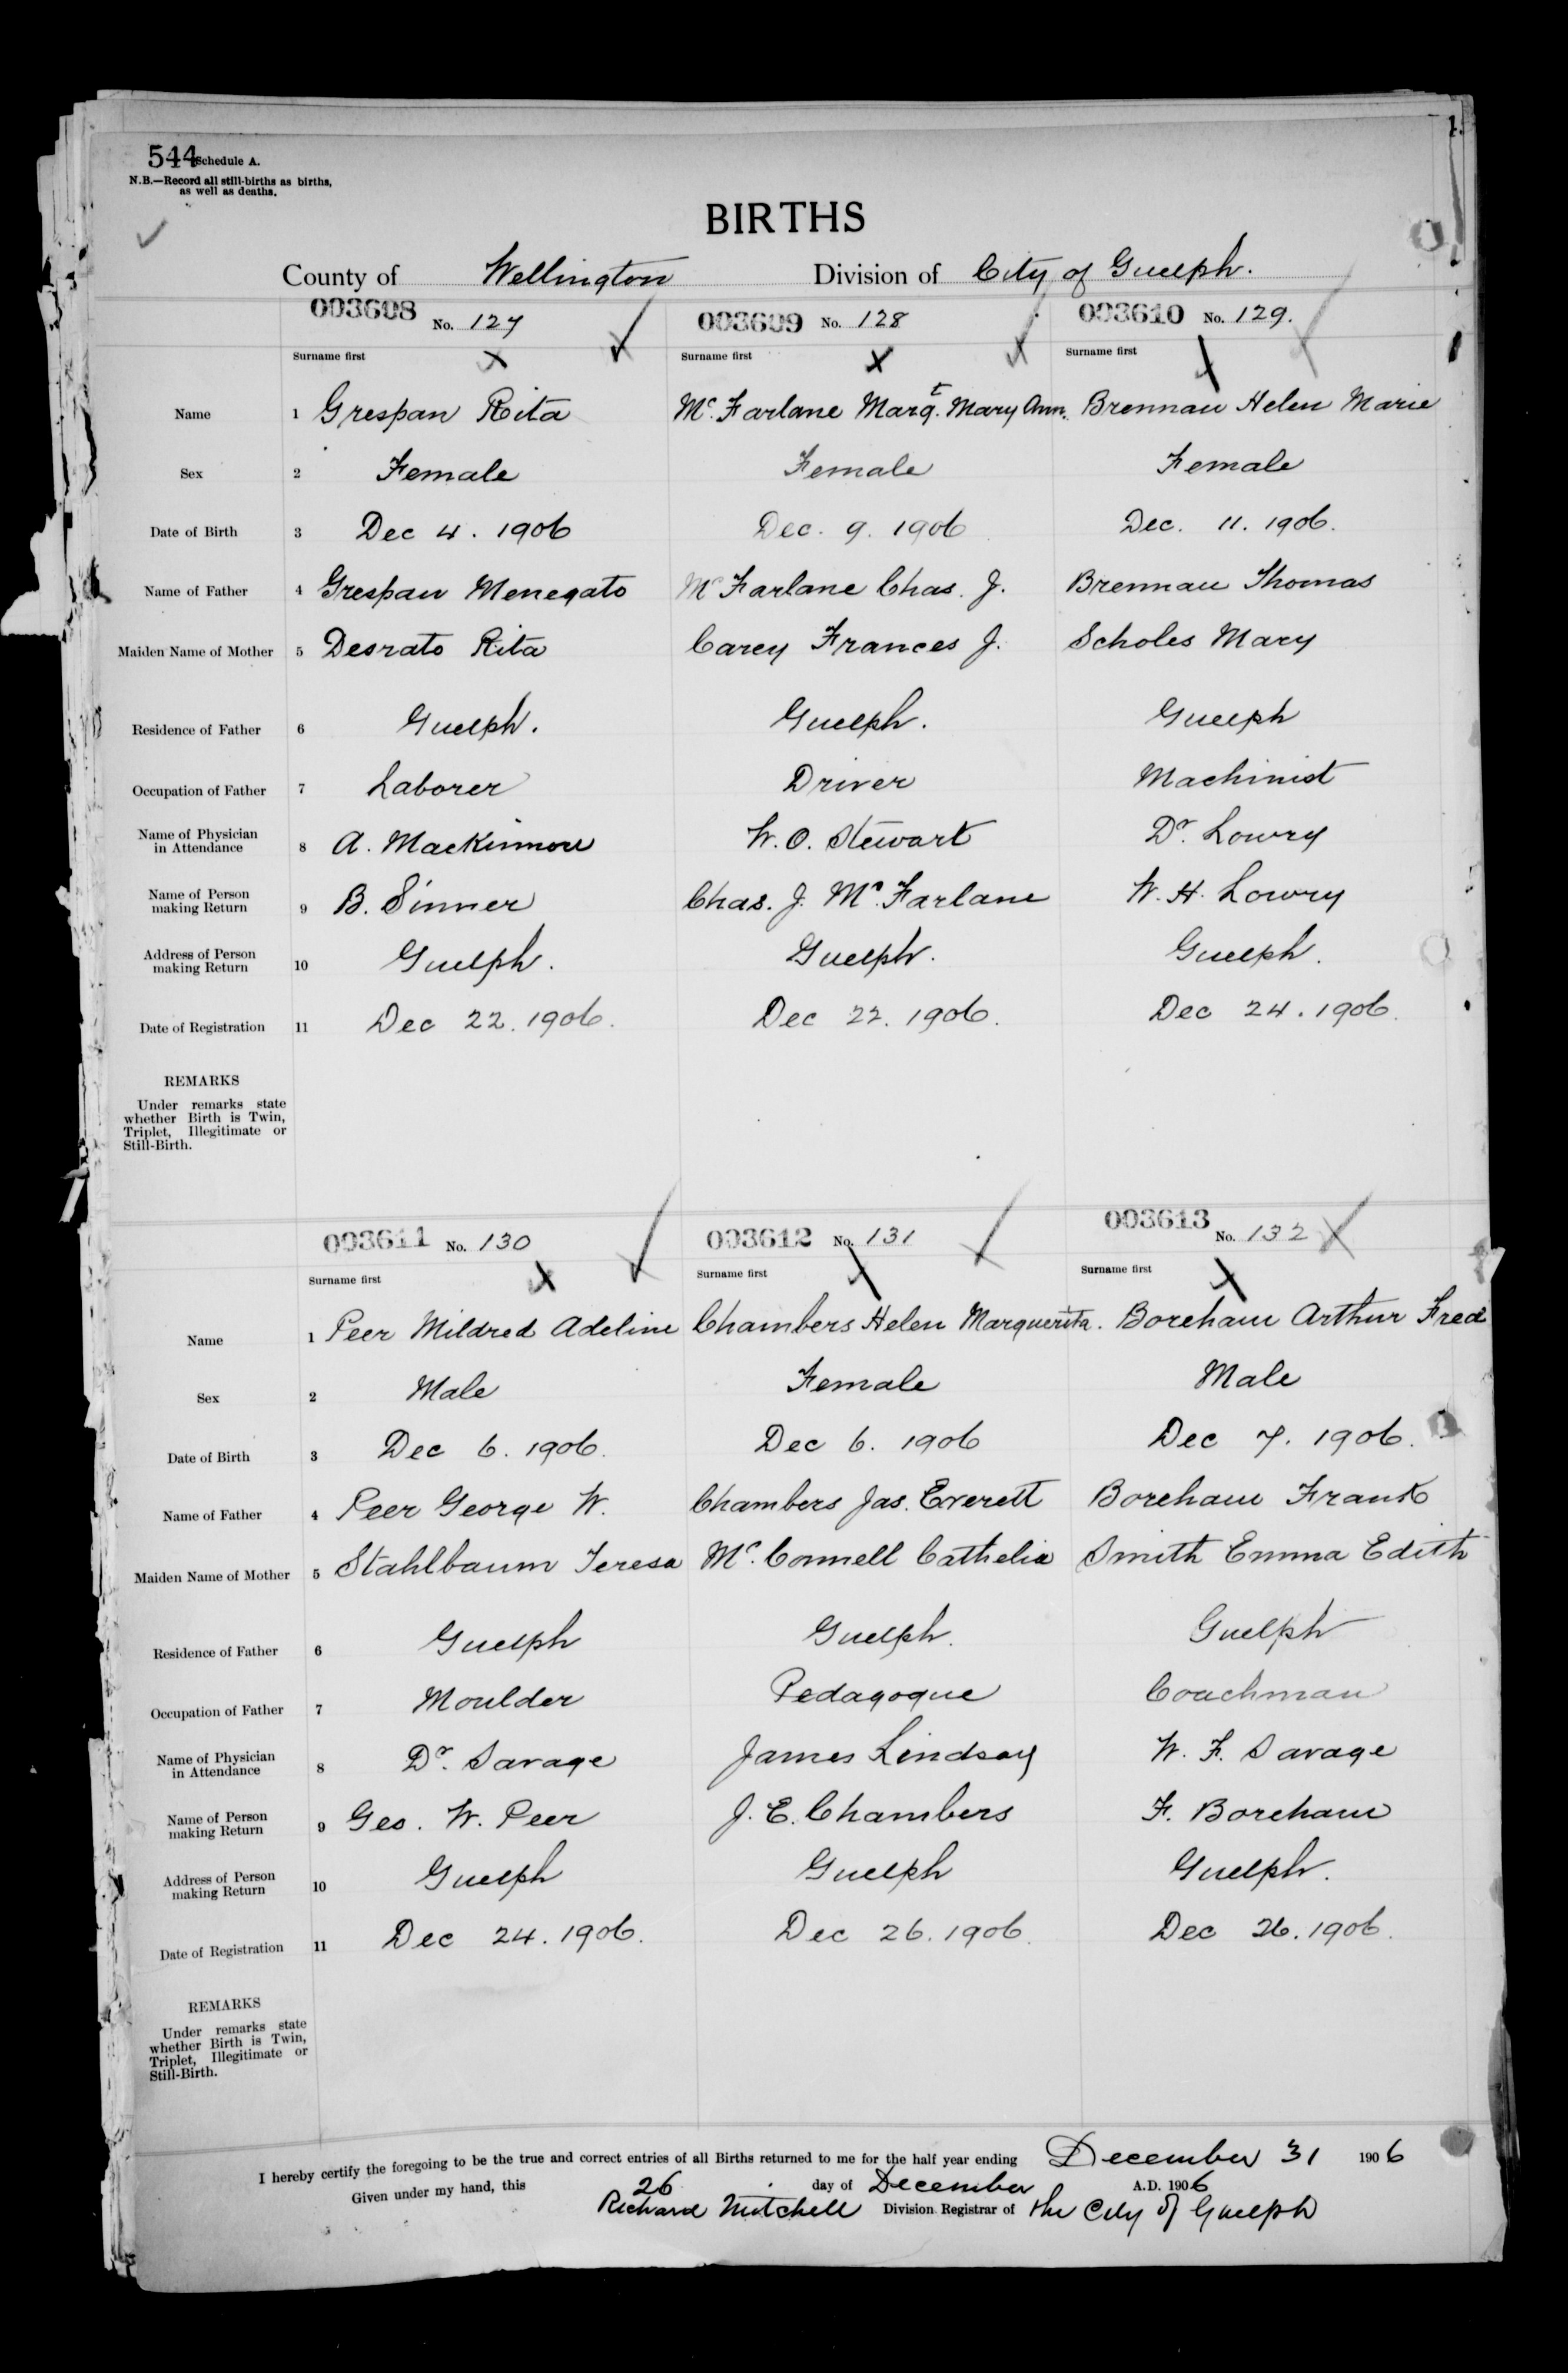 544 Schedule A.
N.B.—Record all still-births as births,
as well as deaths.
BIRTHS
County of Wellington Division of City of Guelph.
003608 No. 127 003609 No. 128 003610 No. 129.
Surname first Surname first Surname first
Name 1 Grespan Rita McFarlane Margt. Mary Ann. Brennan Helen Marie
Sex 2 Female Female Female
Date of Birth 3 Dec 4. 1906 Dec. 9. 1906 Dec. 11. 1906.
Name of Father 4 Grespan Menegato McFarlane Chas. J. Brennan Thomas
Maiden Name of Mother 5 Desrato Rita Carey Frances J. Scholes Mary
Residence of Father 6 Guelph. Guelph. Guelph
Occupation of Father 7 Laborer Driver Machinist
Name of Physician
in Attendance 8 A. MacKinnon W. O. Stewart Dr. Lowry
Name of Person
making Return 9 B. Sinner Chas. J. McFarlane W. H. Lowry
Address of Person
making Return 10 Guelph. Guelph. Guelph.
Date of Registration 11 Dec 22. 1906. Dec 22. 1906. Dec 24. 1906.
REMARKS
Under remarks state
whether Birth is Twin,
Triplet, Illegitimate or
Still-Birth.
003611 No. 130 003612 No. 131 003613 No. 132
Surname first Surname first Surname first
Name 1 Peer Mildred Adeline Chambers Helen Marguerita. Boreham Arthur Fred
Sex 2 Male Female Male
Date of Birth 3 Dec 6. 1906. Dec 6. 1906 Dec 7. 1906.
Name of Father 4 Peer George W. Chambers Jas. Everett Boreham Frank
Maiden Name of Mother 5 Stahlbaum Teresa Mc.Connell Cathelia Smith Emma Edith
Residence of Father 6 Guelph Guelph. Guelph
Occupation of Father 7 Moulder Pedagogue Coachman
Name of Physician
in Attendance 8 Dr. Savage James Lindsay W. F. Savage
Name of Person
making Return 9 Geo. W. Peer J. E. Chambers F. Boreham
Address of Person
making Return 10 Guelph Guelph Guelph.
Date of Registration 11 Dec 24. 1906. Dec 26. 1906. Dec 26. 1906.
REMARKS
Under remarks state
whether Birth is Twin,
Triplet, Illegitimate or
Still-Birth.
I hereby certify the foregoing to be the true and correct entries of all Births returned to me for the half year ending December 31 1906
Given under my hand, this 26 day of December A.D. 1906
Richard Mitchell Division Registrar of the City of Guelph